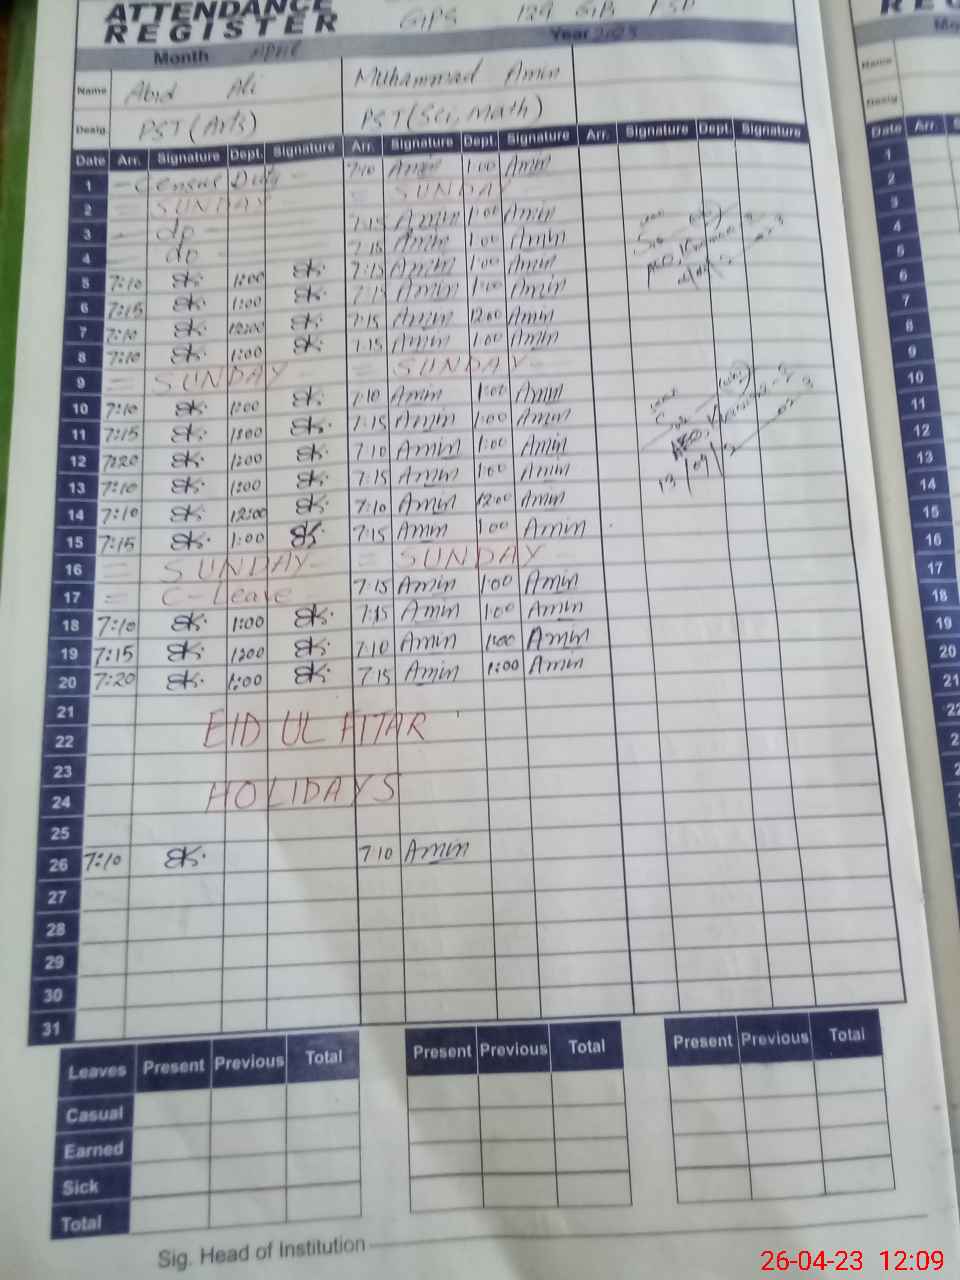 ATTENDANCE
REGISTER
GPS 129 GB FSD
Month April Year 2023
Name Abid Ali Muhammad Amin
Desig. PST (Arts) PST (Sci, Math)
Date Arr. Signature Dept. Signature Arr. Signature Dept. Signature Arr. Signature Dept. Signature
1 - Census Duty - 7:10 Amin 1:00 Amin
2 = SUNDAY = SUNDAY
3 - do 7:15 Amin 1:00 Amin
4 - do 7:15 Amin 1:00 Amin
5 7:10 1:00 7:15 Amin 1:00 Amin
6 7:15 1:00 7:15 Amin 1:00 Amin
7 7:10 12:00 7:15 Amin 12:00 Amin
8 7:10 1:00 7:15 Amin 1:00 Amin
9 = SUNDAY - = SUNDAY -
10 7:10 1:00 7:10 Amin 1:00 Amin
11 7:15 1:00 7:15 Amin 1:00 Amin
12 7:20 1:00 7:10 Amin 1:00 Amin
13 7:10 1:00 7:15 Amin 1:00 Amin
14 7:10 12:00 7:10 Amin 12:00 Amin
15 7:15 1:00 7:15 Amin 1:00 Amin
16 = SUNDAY - = SUNDAY
17 = C-Leave 7:15 Amin 1:00 Amin
18 7:10 1:00 7:15 Amin 1:00 Amin
19 7:15 1:00 7:10 Amin 1:00 Amin
20 7:20 1:00 7:15 Amin 1:00 Amin
21
22 EID UL FITAR
23
24 HOLIDAYS
25
26 7:10 7:10 Amin
27
28
29
30
31
Leaves Present Previous Total Present Previous Total Present Previous Total
Casual
Earned
Sick
Total
Sig. Head of Institution
Name
Desig.
Date Arr.
1
2
3
4
5
6
7
8
9
10
11
12
13
14
15
16
17
18
19
20
21
22
26-04-23 12:09